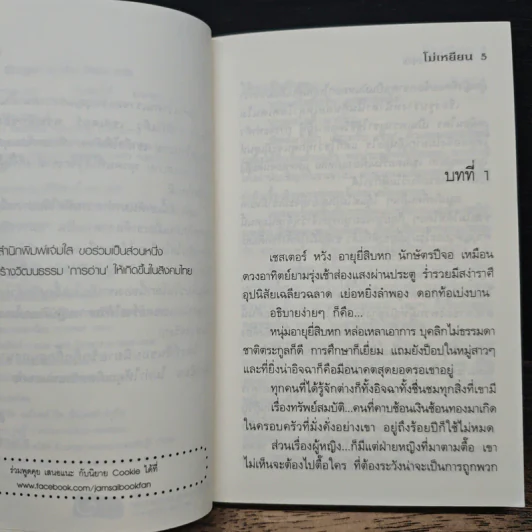 สำนักพิมพ์แจ่มใส ขอร่วมเป็นส่วนหนึ่ง
สร้างวัฒนธรรม 'การอ่าน' ให้เกิดขึ้นในสังคมไทย
ร่วมพูดคุย เสนอแนะ กับนิยาย Cookie ได้ที่
www.facebook.com/jamsaibookfan
โม่เหยียน 5
บทที่ 1
เชสเตอร์ หวัง อายุยี่สิบหก นักษัตรปีจอ เหมือน
ดวงอาทิตย์ยามรุ่งเช้าส่องแสงผ่านประตู ร่ำรวยมีสง่าราศี
อุปนิสัยเฉลียวฉลาด เย่อหยิ่งลำพอง ดอกท้อเบ่งบาน
อธิบายง่ายๆ ก็คือ...
หนุ่มอายุยี่สิบหก หล่อเหลาเอาการ บุคลิกไม่ธรรมดา
ชาติตระกูลก็ดี การศึกษาก็เยี่ยม แถมยังป๊อปในหมู่สาวๆ
และที่ยิ่งน่าอิจฉาก็คือมีอนาคตสุดยอดรอเขาอยู่
ทุกคนที่ได้รู้จักต่างก็ทั้งอิจฉาทั้งชื่นชมทุกสิ่งที่เขามี
เรื่องทรัพย์สมบัติ...คนที่คาบช้อนเงินช้อนทองมาเกิด
ในครอบครัวที่มั่งคั่งอย่างเขา อยู่ถึงร้อยปีก็ใช้ไม่หมด
ส่วนเรื่องผู้หญิง...ก็มีแต่ฝ่ายหญิงที่มาตามตื๊อ เขา
ไม่เห็นจะต้องไปตื๊อใคร ที่ต้องระวังน่าจะเป็นการถูกพวก